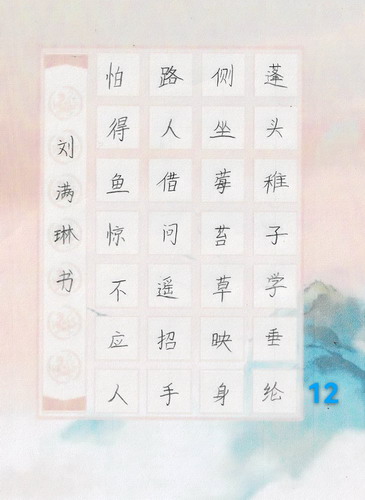 蓬头稚子学垂纶
侧坐莓苔草映身
路人借问遥招手
怕得鱼惊不应人
刘满琳书
12